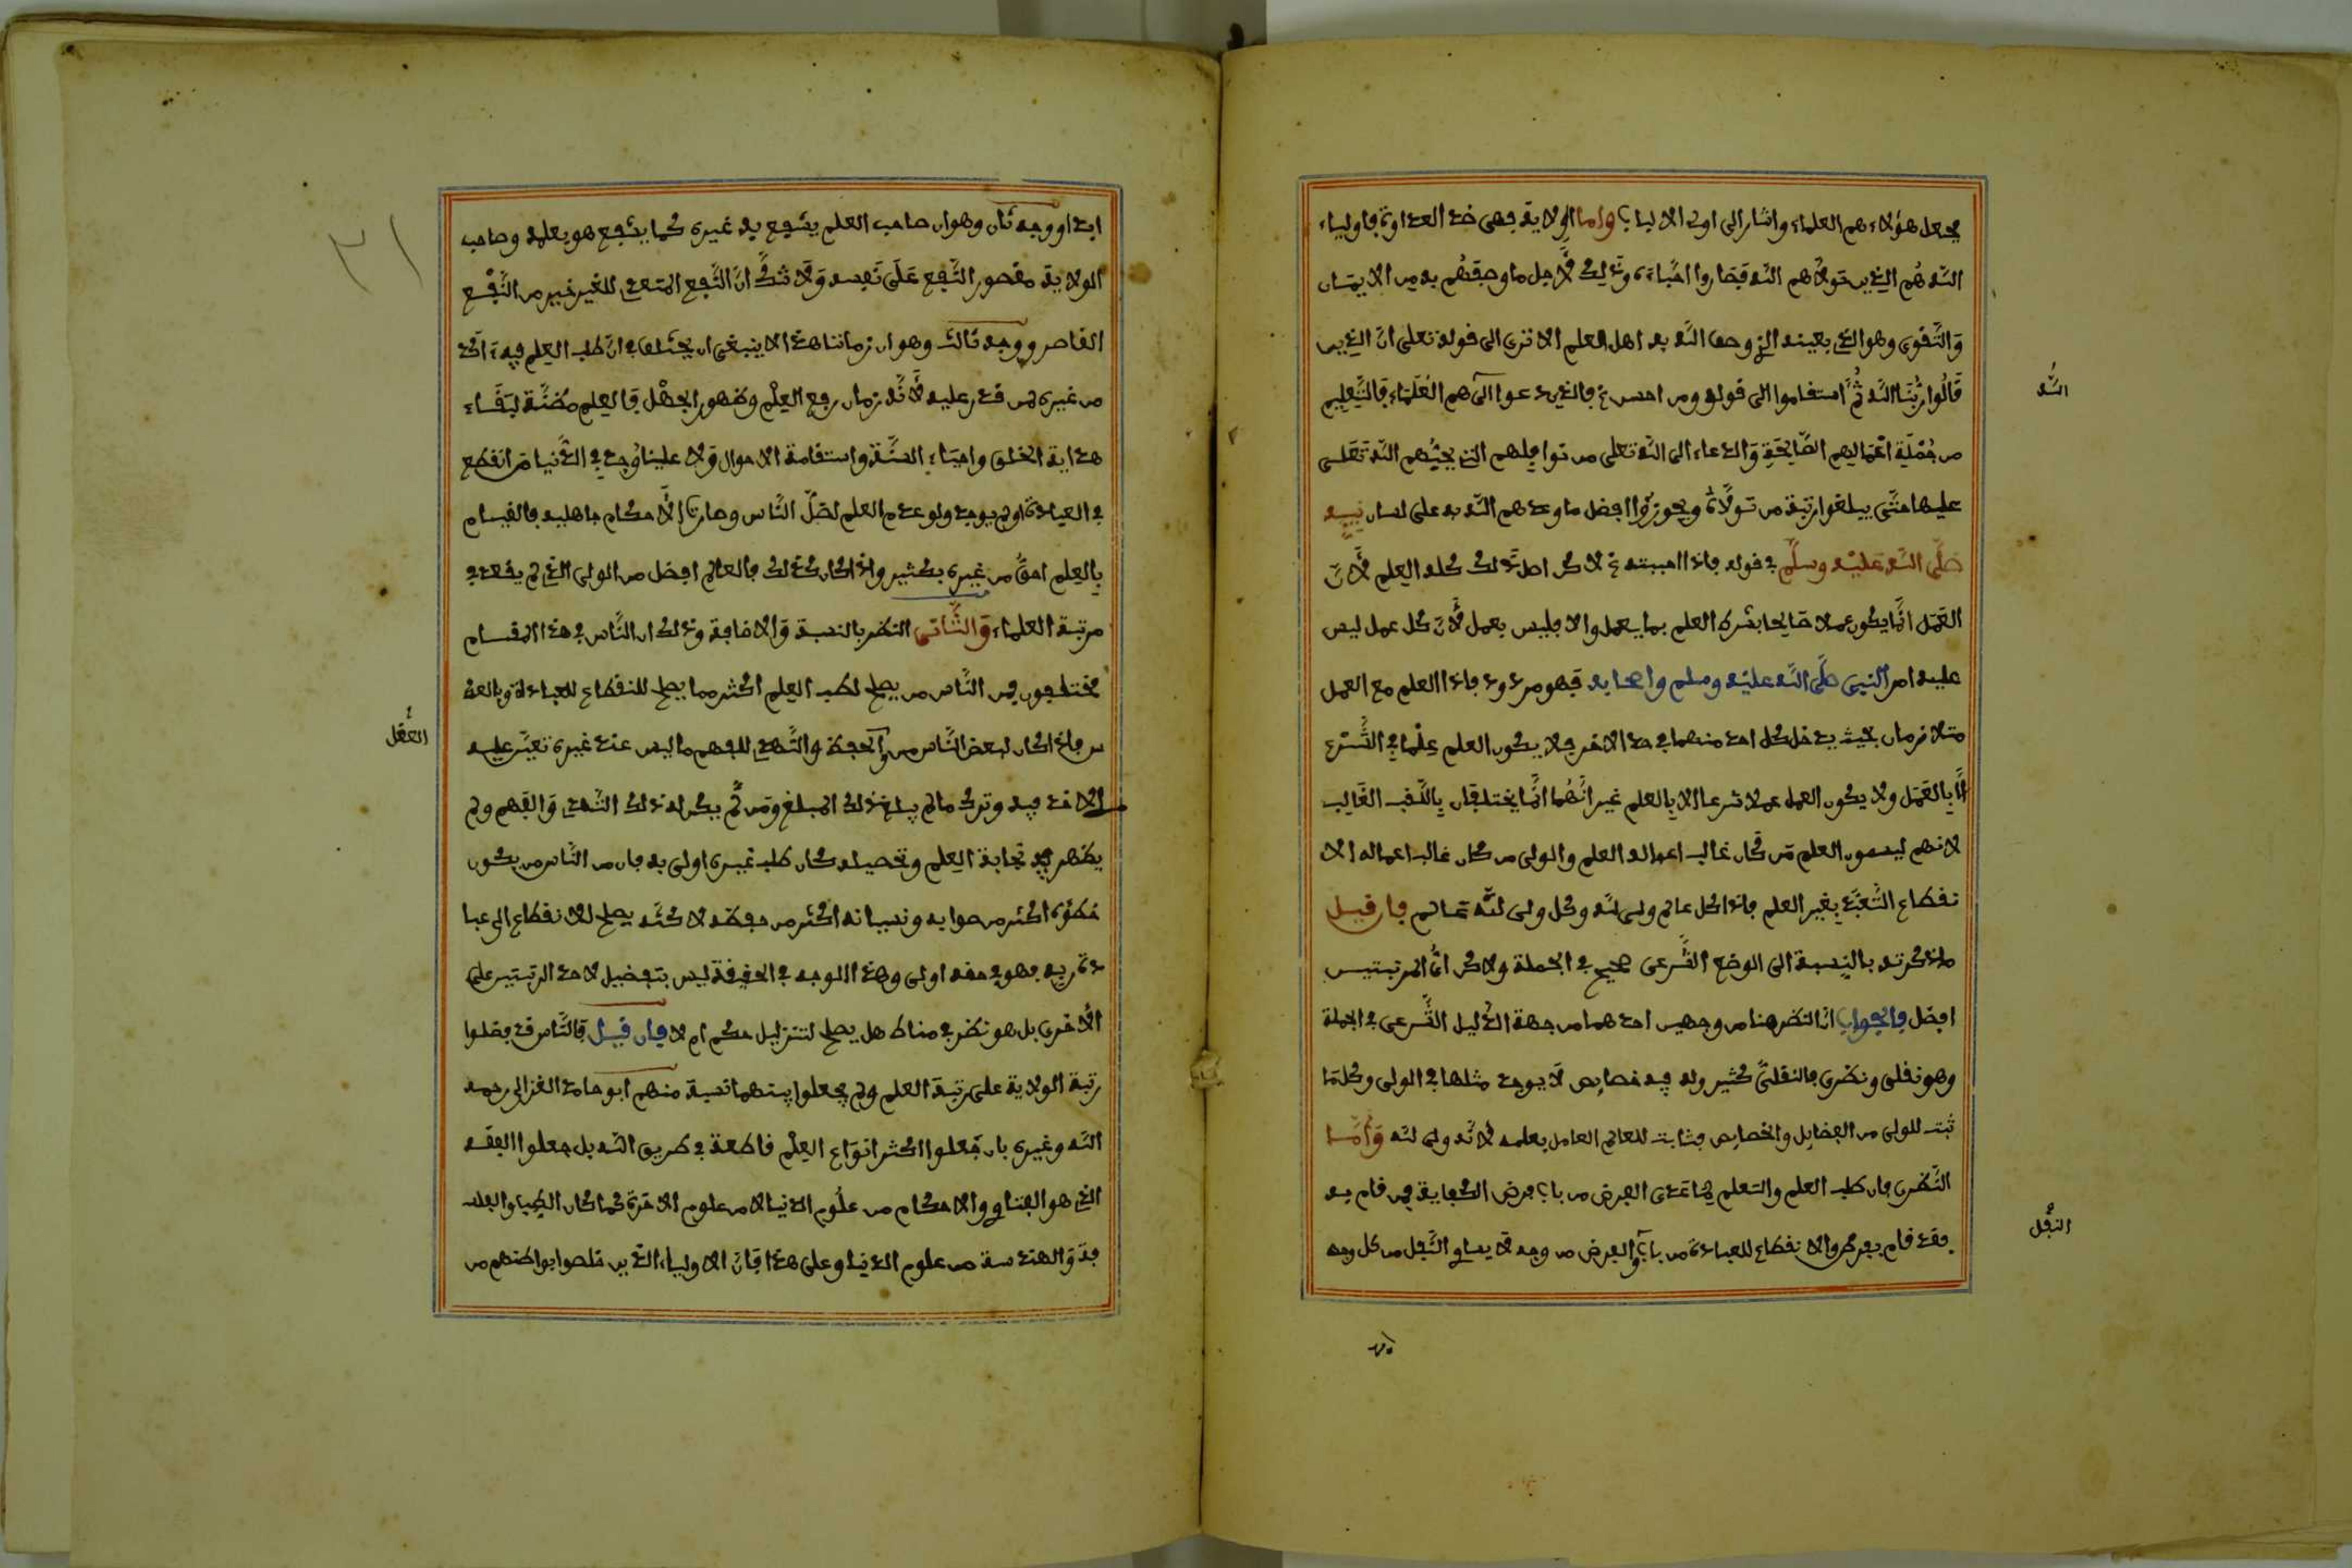 يجعل هؤلاء هم العلماء واشار الى اولى الالباب واما الولاية فهى ضد العداوة فاولياء
الله هُم الذين تولاهم الله فصاروا احباءه وذلك لاجل ما وفقهُم به من الايمان
وَالتَّقوى وهو الذى بعينه الذى وصف الله به اهل العلم الا ترى الى قوله تعلى انّ الذين
قَالُوا ربُّنَا الله ثُمَّ استقاموا الى قوله ومن احسن فالذين دعوا الى الله هم العُلمَاء فالتَّعليم
من جُمْلَةِ اعْمَالِهم الصَّالِحَةِ وَالدعاء الى الله تعلى من نوافلهم التى يحبُّهم الله تعلى
عليها حتَّى يبلغوا رتبة من تولاه ويحوزوا افضل ما وعدهم الله به على لسان نبيه
صلَّى الله عليْه وسلَّم فى قوله فاذا احببته لاكن اصل ذلك كله العِلم لأنّ
العَمَل انَّما يكون عملا صَالِحا بشرط العلم بما يعمل والا فليس بعمل لأنّ كل عمل ليس
عليه امر النبى صلَّى الله عليْه وسلم واصحابه فهو مردود فاذا العلم مع العمل
متلازمان بحيث يدخل كل احد منهما فى حد الاخر فلا يكون العلم عِلْما فى الشَّرع
الَّا بالعَمَل ولا يكون العمل عملا شرعا الا بالعلم غير انَّهُما انَّما يختلفان باللَّقب الغَالِب
لانهم ليسمون العلم من كان غالب اعماله العلم والولى من كان غالب اعماله الا
نقطاع للتعبُّد بغير العلم فاذا كل عالم ولى لله وكل ولى لله عالم فان قيل
ما ذكرته بالنِسبة الى الوضع الشَّرعى صحيح فى الجملة ولاكن اىُّ المرتبتين
افضل فالجواب انّ النظر هنا من وجهين احدهما من جهة الدَّليل الشَّرعى فى الجملة
وهو نقلى ونظرى فالنقلىّ كثير وله فيه خصايص لَا يوجد مثلها فى الولى وكل مَا
ثبت للولى من الفضايل والخصايص فثابت للعالم العامل بعلمه لأنّه ولى لله وَامَّا
النَّظرى فان طلب العلم والتعلم فيما عدى الفرض من باب فرض الكفاية فمن قام به
فقد قام بفرض والانقطاع للعبادة من باب والفرض من وجه لا يساوى النَّفل من كل وجه
الله
النفل
ابدا ووجه ثان وهو ان صاحب العلم ينتفع به غيره كما ينتفع هو بعلمه وصاحب
الولاية مقصور النَّفع عَلَى نَفسه وَلَا شكَّ انَّ النَّفع المتعدى للغير خير من النَّفع
القاصر ووجه ثالث وهو ان زماننا هذا لا ينبغى ان يختلف فى انّ طلب العِلم فيه ءاكد
من غيره لمن قدر عليه لأنَّه زمان رفع العِلْم وظهور الجهْل فالعِلم مظنَّة لبَقَاء
هداية الخلق واحياء السُنَّة واستقامة الاحوال وَلا علينا اوجد فى الدُّنيا من انقطع
فى العبادة او لم يوجد ولو عدم العلم لضلَّ النَّاس وصارت الأحكام جاهلية فالقيام
بِالعِلم احقُّ من غيره بكثير واذا كان كذلك فالعالم افضل من الولى الذى لم يقعد فى
مرتبة العلماء وَالثَّانى النظر بالنسبة وَالاضافة وذلك ان النَّاس فى هذا الاقسام
مختلفون فمن النَّاس من يصلح لطلب العلم اكثر مما يصلح للانقطاع للعبادة وبالعكـ
س فاذا كان لبعض النَّاس من والحفظ والتَّهدى للفهم ما ليس عند غيره تعيّن عليه
الاخذ فيه وترك ما لم يبلغ ذلك المبلغ ومن لَّم يكن له ذلك التَّهدى وَالفهم ولم
يظهر فيه نجابة العِلم وتحصيله كان طلب غيره اولى به فان من النَّاس من يكون
خطؤه اكثر من صوابه ونسيانه اكثر من حفظه لاكنَّه يصلح للانقطاع الى عبا
دة ربه فهو فى حقه اولى وهذا الوجه فى الحقيقة ليس بتفضيل لاحد الرتبتين على
الأخرى بل هو نظر فى مناط هل يصلح لتنزيل حكم ام لا فان قيل فالنَّاس قد فضلوا
رتبة الولاية على رتبة العلم ولم يجعلوا بينهما نسبة منهم ابو حامد الغزالى رحمه
الله وغيره بان جَعلوا اكثر انوَاع العِلْم قاطعة فى طريق الله بل جعلوا الفقه
الذى هو الفتاوى والاحكام من علُوم الدنيا لا من علوم الاخرة كما كان الطب والفلا
حة وَالهندسة من علوم الدنيا وعلى هذا فانّ الاولياء الذين خلصوا بواطنهم من
العقل
٣١